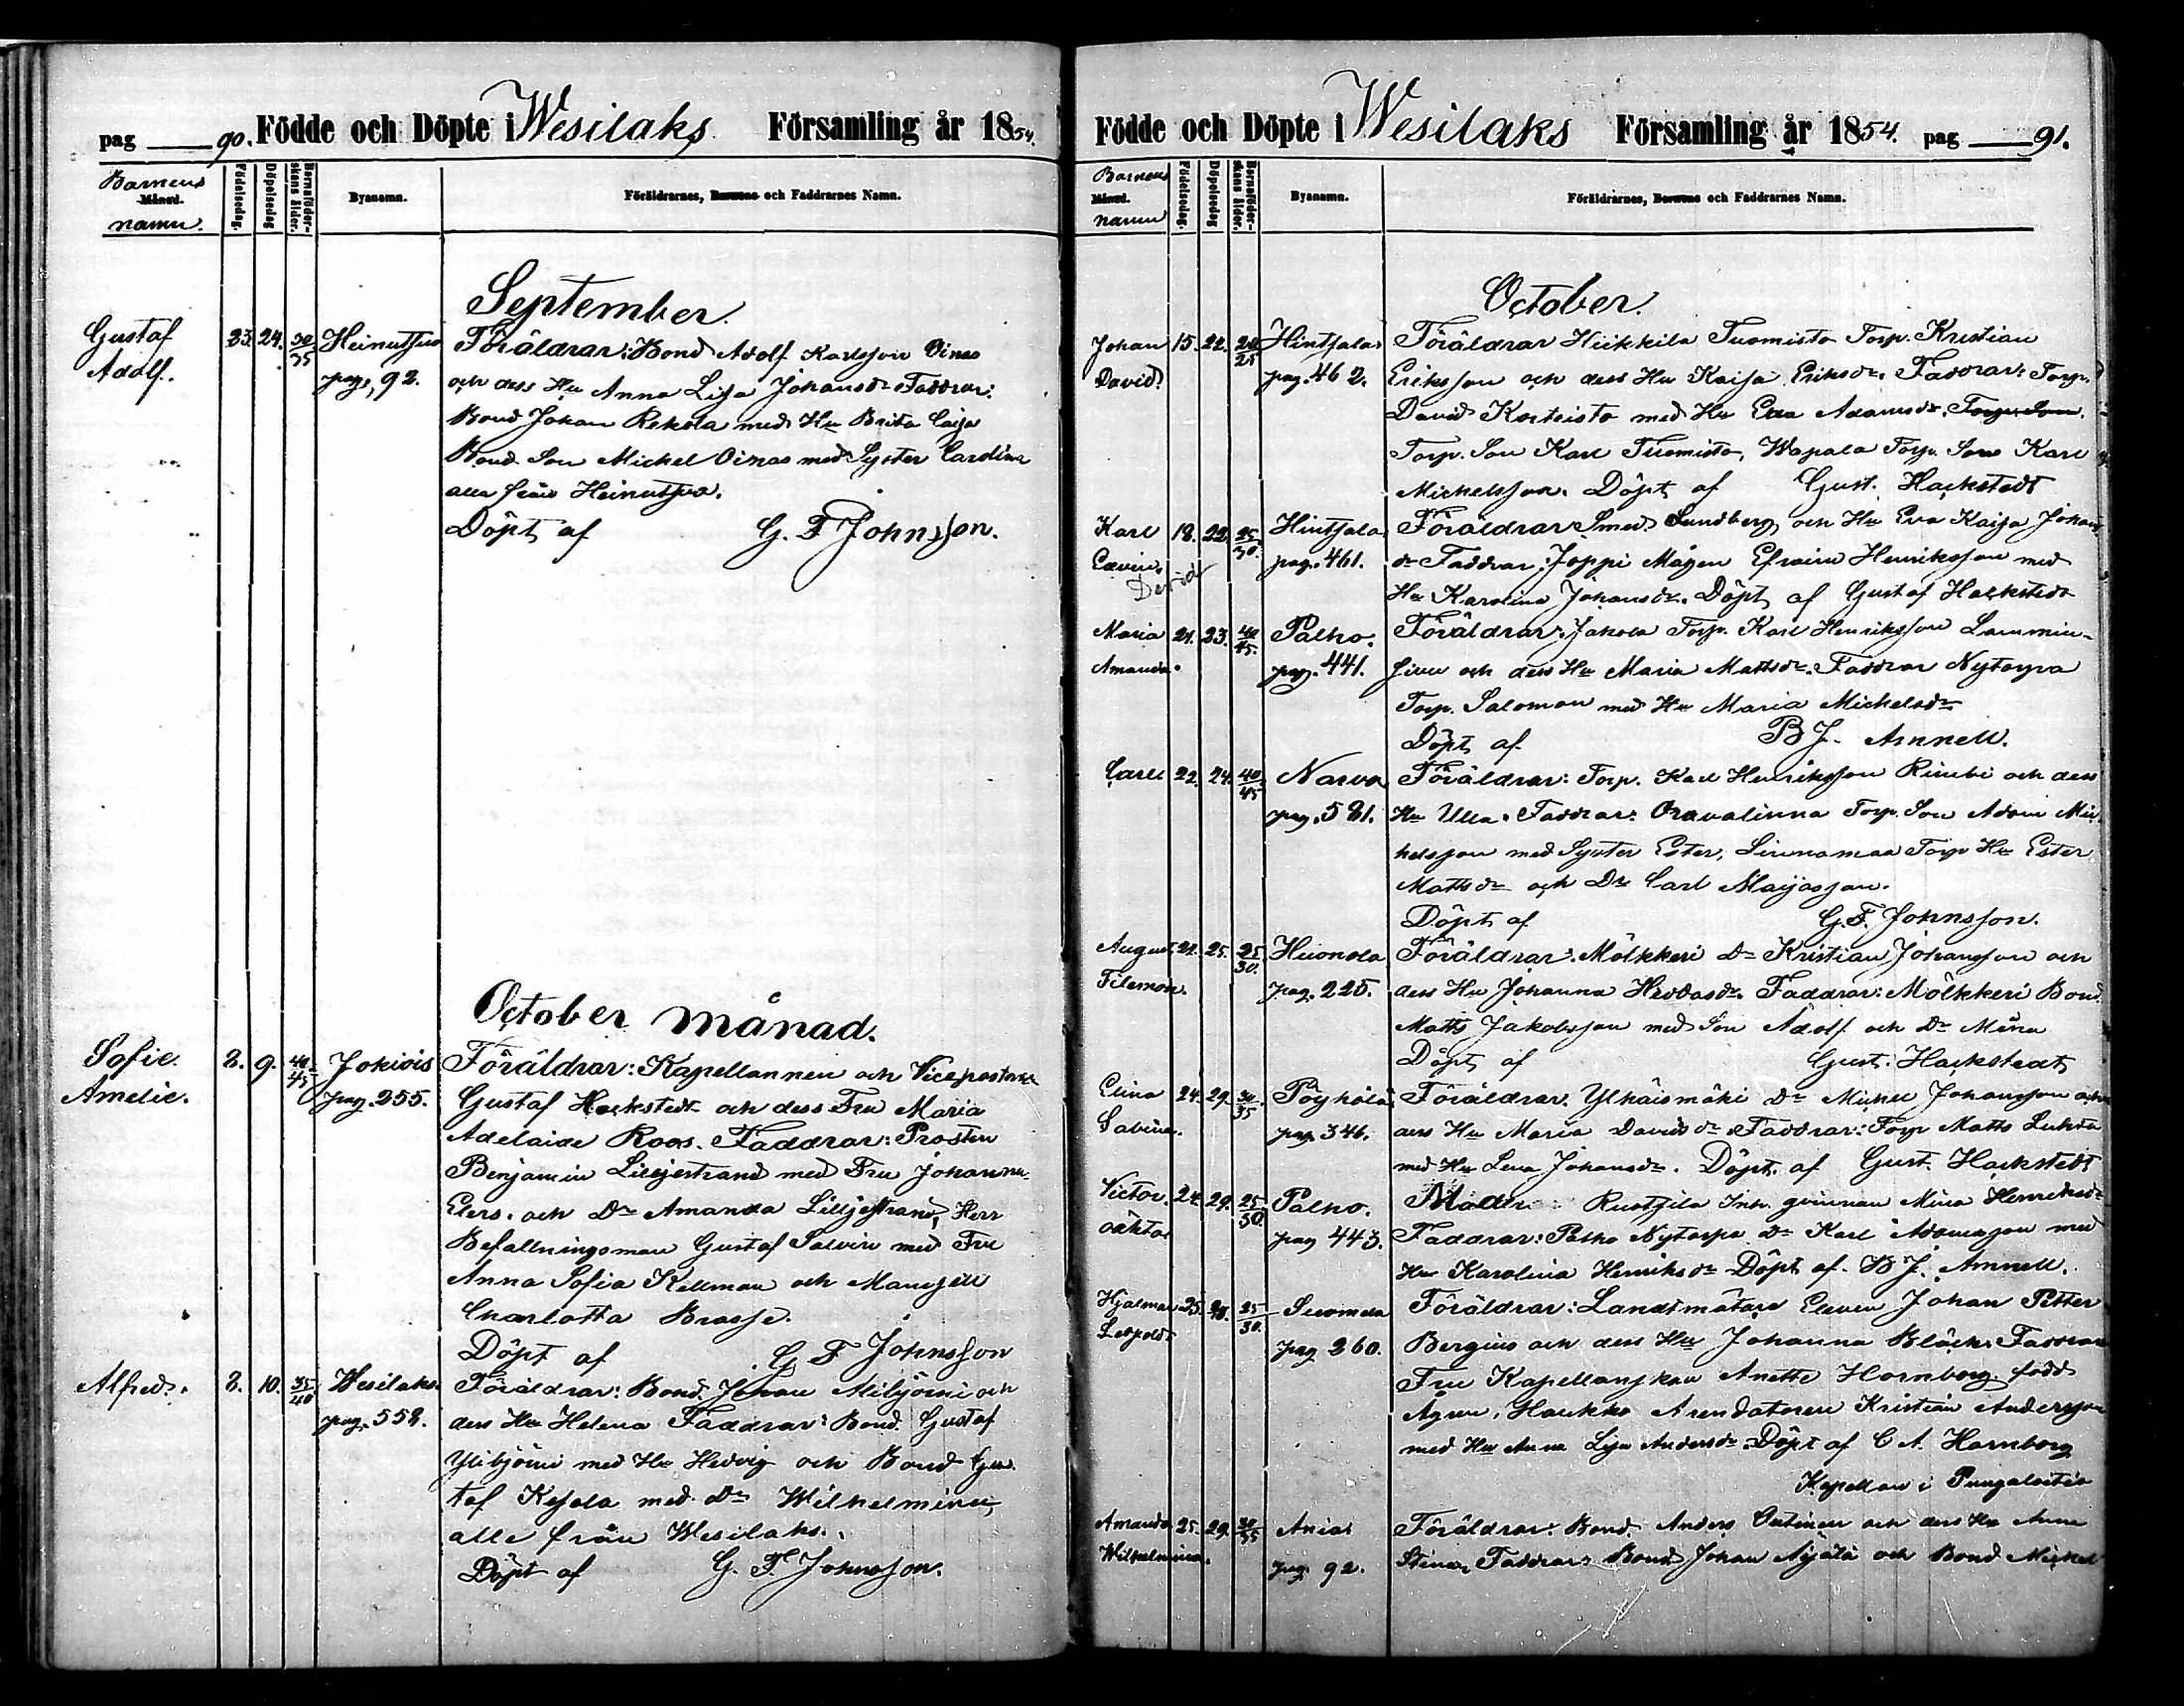 pag 90. Födde och Döpte i Wesilaks Församling år 1854.
Barnens Månad. namn.
Födelsedag.
Döpelsedag
Barnaföder-
skans ålder.
Byanamn.
Föräldrarnes, Barnens och Faddrarnes Namn.
September.
Gustaf 23. 24. 30/35 Heinusuo Föräldrar: Bond Adolf Karlsson Oinas
Adolf. pag. 92. och dess Hu Anna Lisa Johansdr Faddrar:
Bond Johan Rekola med Hu Brita Caisa
Bond. Son Michel Oinas med Syster Carolina
alla från
Döpt af G. F. Johnsson.
October månad.
Sofie. 8. 9. 40/45 Jokiois Föräldrar: Kapellannen och Vicepastorn
Amelie. pag. 255. Gustaf Hackstedt och dess Fru Maria
Adelaide Roos. Faddrar: Prosten
Benjamin Liljestrand med Fru Johanna
Elers. och Dr Amanda Liljestrand, Herr
Befallningsman Gustaf Salvin med Fru
Anna Sofia Kellman och Mamsell
Charlotta Brasse.
Döpt af G. F. Johnsson
Alfred. 8. 10. 35/40 Wesilaks Föräldrar: Bond. Johan Alibjörni och
pag. 552. dess Hu Helena Faddrar: Bond. Gustaf
Ylibjörni med Hu Hedvig och Bond Gus-
taf Kesola med Dr Wilhelmina,
alle från Wesilaks.
Döpt af G. F. Johnsson.
Födde och Döpte i Wesilaks Församling år 1854. pag 91.
Barnens Månad. namn
Födelsedag.
Döpelsedag
Barnaföder-
skans ålder.
Byanamn.
Föräldrarnes, Barnens och Faddrarnes Namn.
October.
Johan 15. 22. 20/25 Hintsala Föräldrar Hiikkila Tuomisto Torp. Kristian
David. pag. 462. Eriksson och dess Hu Kaisa Eriksdr. Faddrar: Torp.
David Kortisto med Hu Eva Adamsdr. Torp. Son.
Torp. Son Karl Tuomisto, Wapala Torp. Son Karl
Michelsson. Döpt af Gust. Hackstedt
Karl 18. 22. 25/30. Hintsala Föräldrar Smed Sundberg och Hu Eva Kaisa Johans
Edvin. pag. 461. dr Faddrar. Joppi Mågen Efraim Henriksson med
Hu Karolina Johansdr. Döpt af Gustaf Hackstedt
Maria 21. 23. 40/45. Palho. Föräldrar. Jakola Torp. Karl Henriksson Lammin-
Amanda. pag. 441. sivu och dess Hu Maria Mattsdr. Faddrar Nytorpa
Torp. Salomon med Hu Maria Michelsdr
Döpt af B J. Amnell.
Carll 22. 24. 40/45 Narva Föräldrar: Torp. Karl Henriksson Rimbi och dess
pag. 581. Hu Ulla. Faddrar: Oravalinna Torp. Son Adam Mic-
helsson med Syster Ester, Linnamaa Torp Hu Ester
Mattsdr och Dr Carl Maijasson.
Döpt af G. F. Johnsson.
August 21. 25. 25/30. Huonola Föräldrar: Mölkkeri Dr Kristian Johansson och
Filemon. pag. 225. dess Hu Johanna Heddasdr. Faddrar: Mölkkeri Bond
Matts Jakobsson med Son Adolf och Dr Mina
Döpt af Gust. Hackstedt
Elina 24. 29. 30/35. Pöyhölä Föräldrar. Ylhäismäki Dr Michel Johansson och
Sabina. pag 346. dess Hu Maria Davidsdr. Faddrar: Torp Matts Luhta
med Hu Lena Johansdr. Döpt af Gust. Hackstedt
Victor. 24. 29. 25/30. Palho. Moder: Rustfila Inh. qvinnan Mina Henriksdr
oäkta pag 443. Faddrar: Palho Nytorpa Dr Karl Adamsson med
Hu Karolina Henriksdr Döpt af B J. Amnell.
Hjalmar 25. 28. 25/30. Suomela Föräldrar: Landtmätare Eleven Johan Petter
Leopold pag 260. Bergius och dess Hu Johanna Bläck. Faddrar
Fru Kapellanskan Anette Hornborg född
Ågren, Haukko Arendatoren Kristian Andersson
med Hu Anna Lisa Andersdr. Döpt af C A. Hornborg
Kapellan i
Amanda 25. 29. 30/35 Anias Föräldrar: Bond. Anders Outinen och dess Hu Anna
Wilhelmina. pag 92. Stina, Faddrar: Bond Johan Äijälä och Bond Mickel